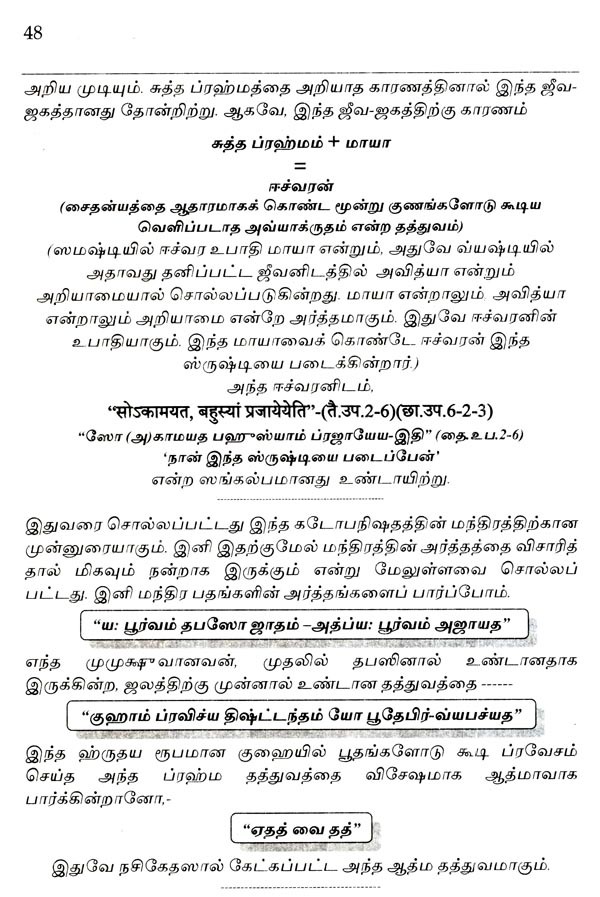 48
அறிய முடியும். சுத்த ப்ரஹ்மத்தை அறியாத காரணத்தினால் இந்த ஜீவ-
ஜகத்தானது தோன்றிற்று. ஆகவே, இந்த ஜீவ-ஜகத்திற்கு காரணம்
சுத்த ப்ரஹ்மம் + மாயா
=
ஈச்வரன்
(சைதன்யத்தை ஆதாரமாகக் கொண்ட மூன்று குணங்களோடு கூடிய
வெளிப்படாத அவ்யாக்ருதம் என்ற தத்துவம்)
(ஸமஷ்டியில் ஈச்வர உபாதி மாயா என்றும், அதுவே வ்யஷ்டியில்
அதாவது தனிப்பட்ட ஜீவனிடத்தில் அவித்யா என்றும்
அறியாமையால் சொல்லப்படுகின்றது. மாயா என்றாலும் அவித்யா
என்றாலும் அறியாமை என்றே அர்த்தமாகும். இதுவே ஈச்வரனின்
உபாதியாகும். இந்த மாயாவைக் கொண்டே ஈச்வரன் இந்த
ஸ்ருஷ்டியை படைக்கின்றார்.)
அந்த ஈச்வரனிடம்,
“सोऽकामयत, बहुस्यां प्रजायेयेति”-(तै.उप.2-6)(छा.उप.6-2-3)
“ஸோ (அ)காமயத பஹுஸ்யாம் ப்ரஜாயேய-இதி” (தை.உப.2-6)
‘நான் இந்த ஸ்ருஷ்டியை படைப்பேன்’
என்ற ஸங்கல்பமானது உண்டாயிற்று.
இதுவரை சொல்லப்பட்டது இந்த கடோபநிஷதத்தின் மந்திரத்திற்கான
முன்னுரையாகும். இனி இதற்குமேல் மந்திரத்தின் அர்த்தத்தை விசாரித்
தால் மிகவும் நன்றாக இருக்கும் என்று மேலுள்ளவை சொல்லப்
பட்டது. இனி மந்திர பதங்களின் அர்த்தங்களைப் பார்ப்போம்.
“ய: பூர்வம் தபஸோ ஜாதம் –அத்ப்ய: பூர்வம் அஜாயத”
எந்த முமுக்ஷுவானவன், முதலில் தபஸினால் உண்டானதாக
இருக்கின்ற, ஜலத்திற்கு முன்னால் உண்டான தத்துவத்தை ------
“குஹாம் ப்ரவிச்ய திஷ்ட்டந்தம் யோ பூதேபிர்-வ்யபச்யத”
இந்த ஹ்ருதய ரூபமான குஹையில் பூதங்களோடு கூடி ப்ரவேசம்
செய்த அந்த ப்ரஹ்ம தத்துவத்தை விசேஷமாக ஆத்மாவாக
பார்க்கின்றானோ,-
“ஏதத் வை தத்”
இதுவே நசிகேதஸால் கேட்கப்பட்ட அந்த ஆத்ம தத்துவமாகும்.